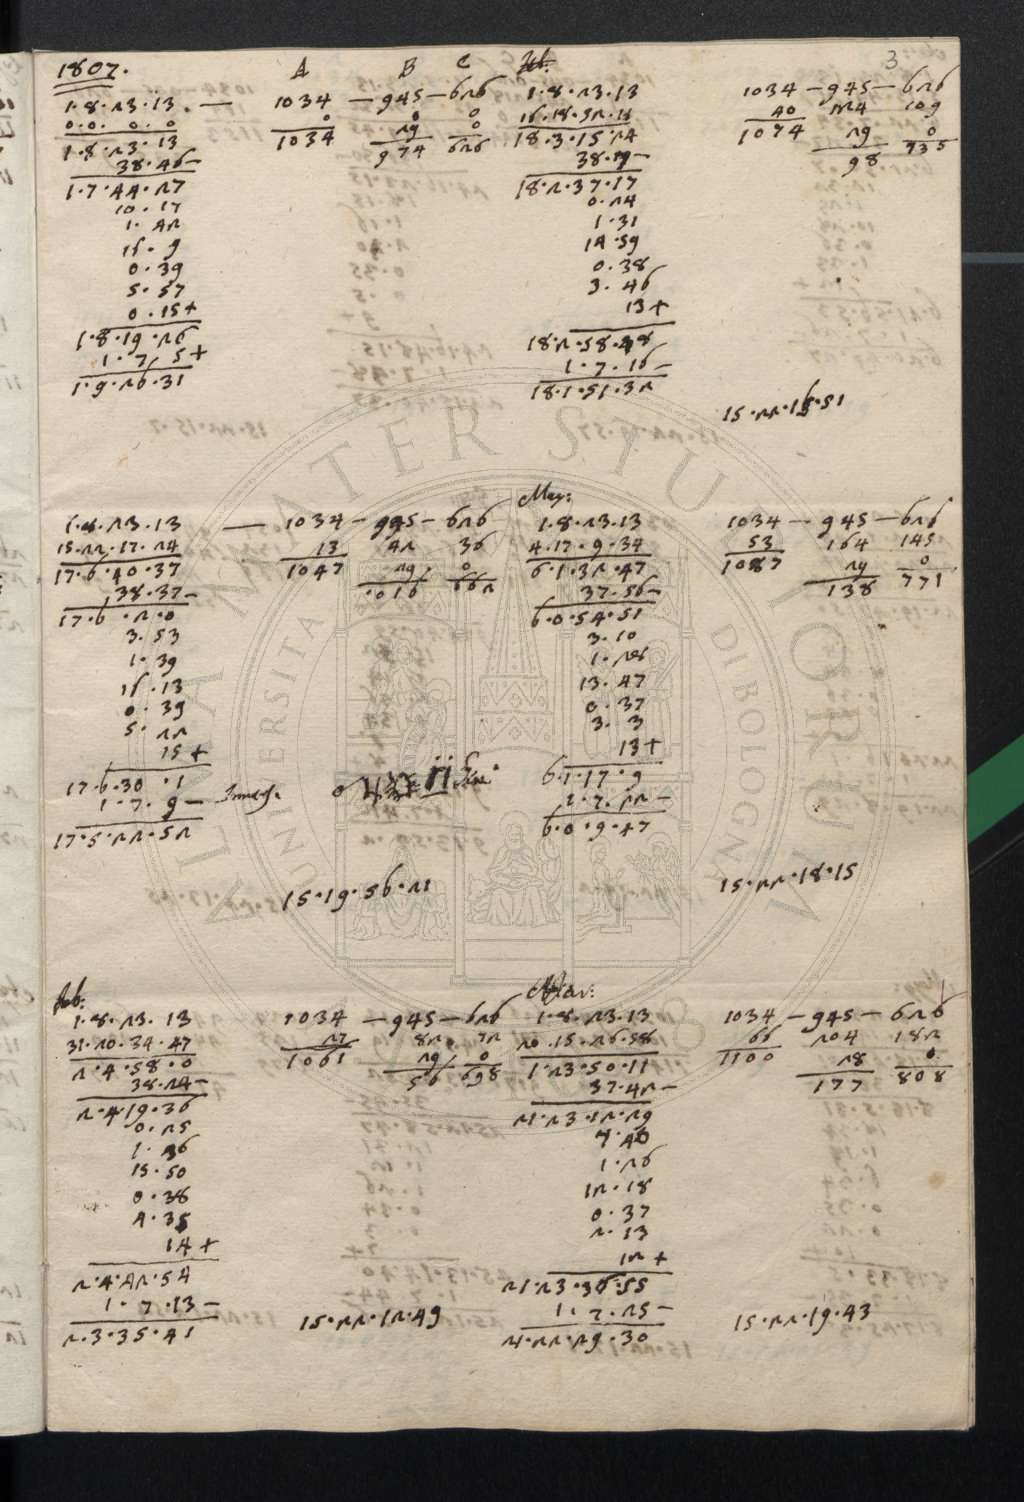 1807.
A B C
1.8.23.13. — 1034 — 945 — 626
0.0.0.0 0 0 0
1.8.23.13 1034 29 0
38.46 — 974 626
1.7.44.27
10.17
1.42
16.9
0.39
5.57
0.15+
1.8.19.26
1.7.5+
1.9.26.31
Feb.
3
1.8.23.13 1034 — 945 — 626
16.18.52.11 40 124 109
18.3.15.24 1074 29 0
38.19 — 98 735
18.2.37.17
0.24
1.31
14.59
0.38
3.46
13+
18.2.58.48
1.7.16 —
18.1.51.32
15.22.15.51
1.8.23.13 — 1034 — 945 — 626
15.22.17.24 13 42 36
17.6.40.37 1047 29 0
38.37 — .016 662
17.6.2.0
3.53
1.39
16.13
0.39
5.22
15+
17.6.30.1
1.7.9 —
17.5.22.52
15.19.56.21
May:
1.8.23.13 1034 — 945 — 626
4.17.9.34 53 164 145
6.1.32.47 1087 29 0
37.56 — 138 771
6.0.54.51
3.10
1.28
13.47
0.37
3.3
13+
6.1.17.9
1.7.22 —
6.0.9.47
15.22.18.15
Feb:
1.8.23.13 1034 — 945 — 626
31.20.34.47 27 82 72
2.4.58.0 1061 29 0
38.24 — 56 698
2.4.19.36
0.25
1.36
15.50
0.38
4.35
14+
2.4.42.54
1.7.13 —
2.3.35.41
15.22.12.49
Mar:
1.8.23.13 1034 — 945 — 626
20.15.26.58 66 204 182
1.23.50.11 1100 28 0
37.42 — 177 808
21.23.12.29
7.40
1.26
12.18
0.37
2.13
12+
21.23.36.55
1.7.25 —
21.22.29.30
15.22.19.43
ALMA MATER STUDIORUM
UNIVERSITA DI BOLOGNA